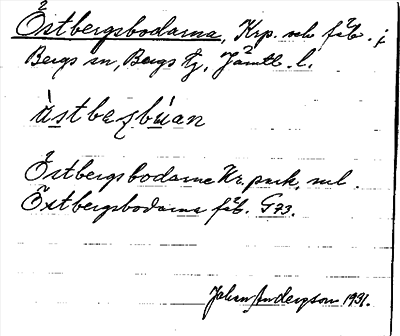 Östbergsbodarna, Krp. och fäb. i
Bergs sn, Bergs tg, Jämtl. l.
östbeṣbu̇an
Östbergsbodarne Kr. park. och
Östbergsbodarna fäb. G73.
Johan Anderzson 1931.